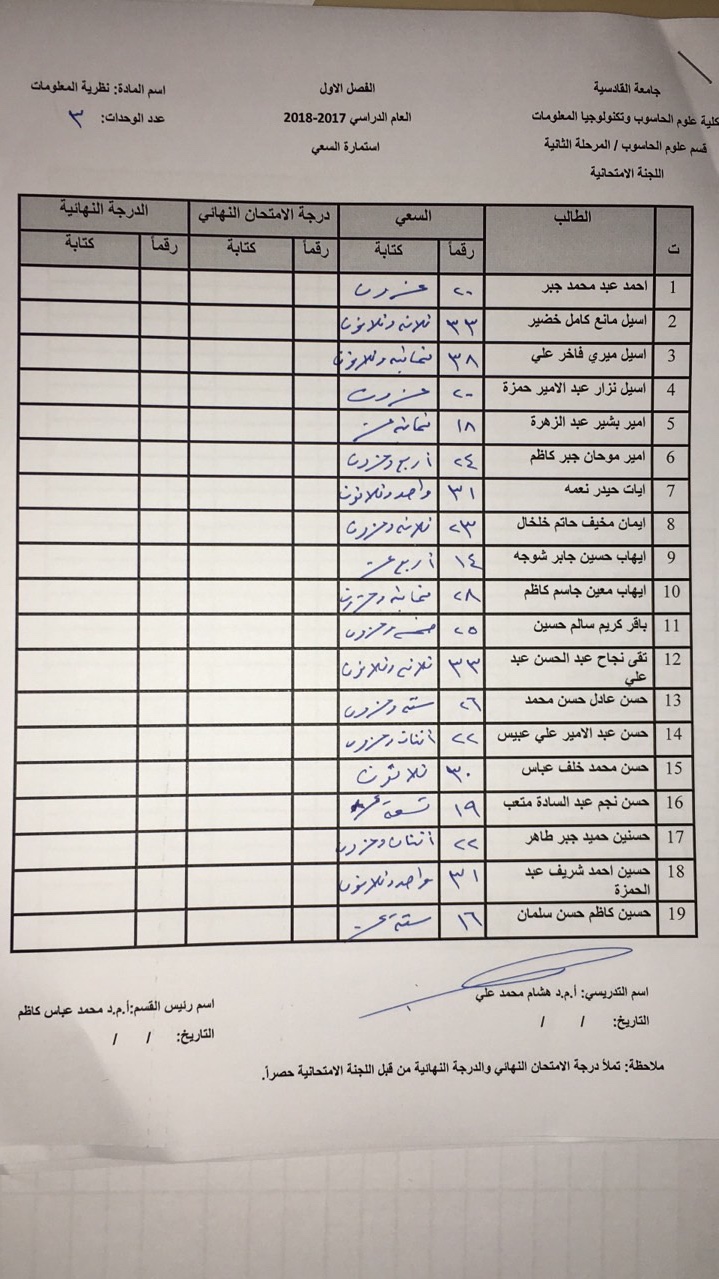 جامعة القادسية
كلية علوم الحاسوب وتكنولوجيا المعلومات
قسم علوم الحاسوب / المرحلة الثانية
اللجنة الامتحانية
الفصل الاول
العام الدراسي 2017-2018
استمارة السعي
اسم المادة: نظرية المعلومات
عدد الوحدات: ٣
ت الطالب السعي درجة الامتحان النهائي الدرجة النهائية
رقماً كتابة رقماً كتابة رقماً كتابة
1 احمد عبد محمد جبر ٢٠ عشرون
2 اسيل مانع كامل خضير ٣٣ ثلاثة وثلاثون
3 اسيل ميري فاخر علي ٣٨ ثمانية وثلاثون
4 اسيل نزار عبد الامير حمزة ٢٠ عشرون
5 امير بشير عبد الزهرة ١٨ ثمانية عشر
6 امير موحان جبر كاظم ٢٤ أربع وعشرون
7 ايات حيدر نعمه ٣١ واحد وثلاثون
8 ايمان مخيف حاتم خلخال ٢٣ ثلاثة وعشرون
9 ايهاب حسين جابر شوجه ١٤ أربع عشر
10 ايهاب معين جاسم كاظم ٢٨ ثمانية وعشرون
11 باقر كريم سالم حسين ٢٥ خمسة وعشرون
12 تقى نجاح عبد الحسن عبد ٣٣ ثلاثة وثلاثون
علي
13 حسن عادل حسن محمد ٢٦ ستة وعشرون
14 حسن عبد الامير علي عبيس ٢٢ أثنان وعشرون
15 حسن محمد خلف عباس ٣٠ ثلاثون
16 حسن نجم عبد السادة متعب ١٩ تسعة عشر
17 حسنين حميد جبر طاهر ٢٢ أثنان وعشرون
18 حسين احمد شريف عبد ٣١ واحد وثلاثون
الحمزة
19 حسين كاظم حسن سلمان ١٦ ستة عشر
اسم التدريسي: أ.م.د هشام محمد علي
التاريخ: / /
اسم رئيس القسم:أ.م.د محمد عباس كاظم
التاريخ: / /
ملاحظة: تملأ درجة الامتحان النهائي والدرجة النهائية من قبل اللجنة الامتحانية حصراً.